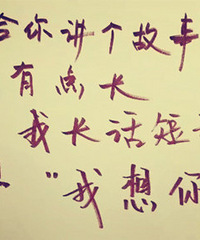 给你讲个故事
有点长
我长话短
“我想你